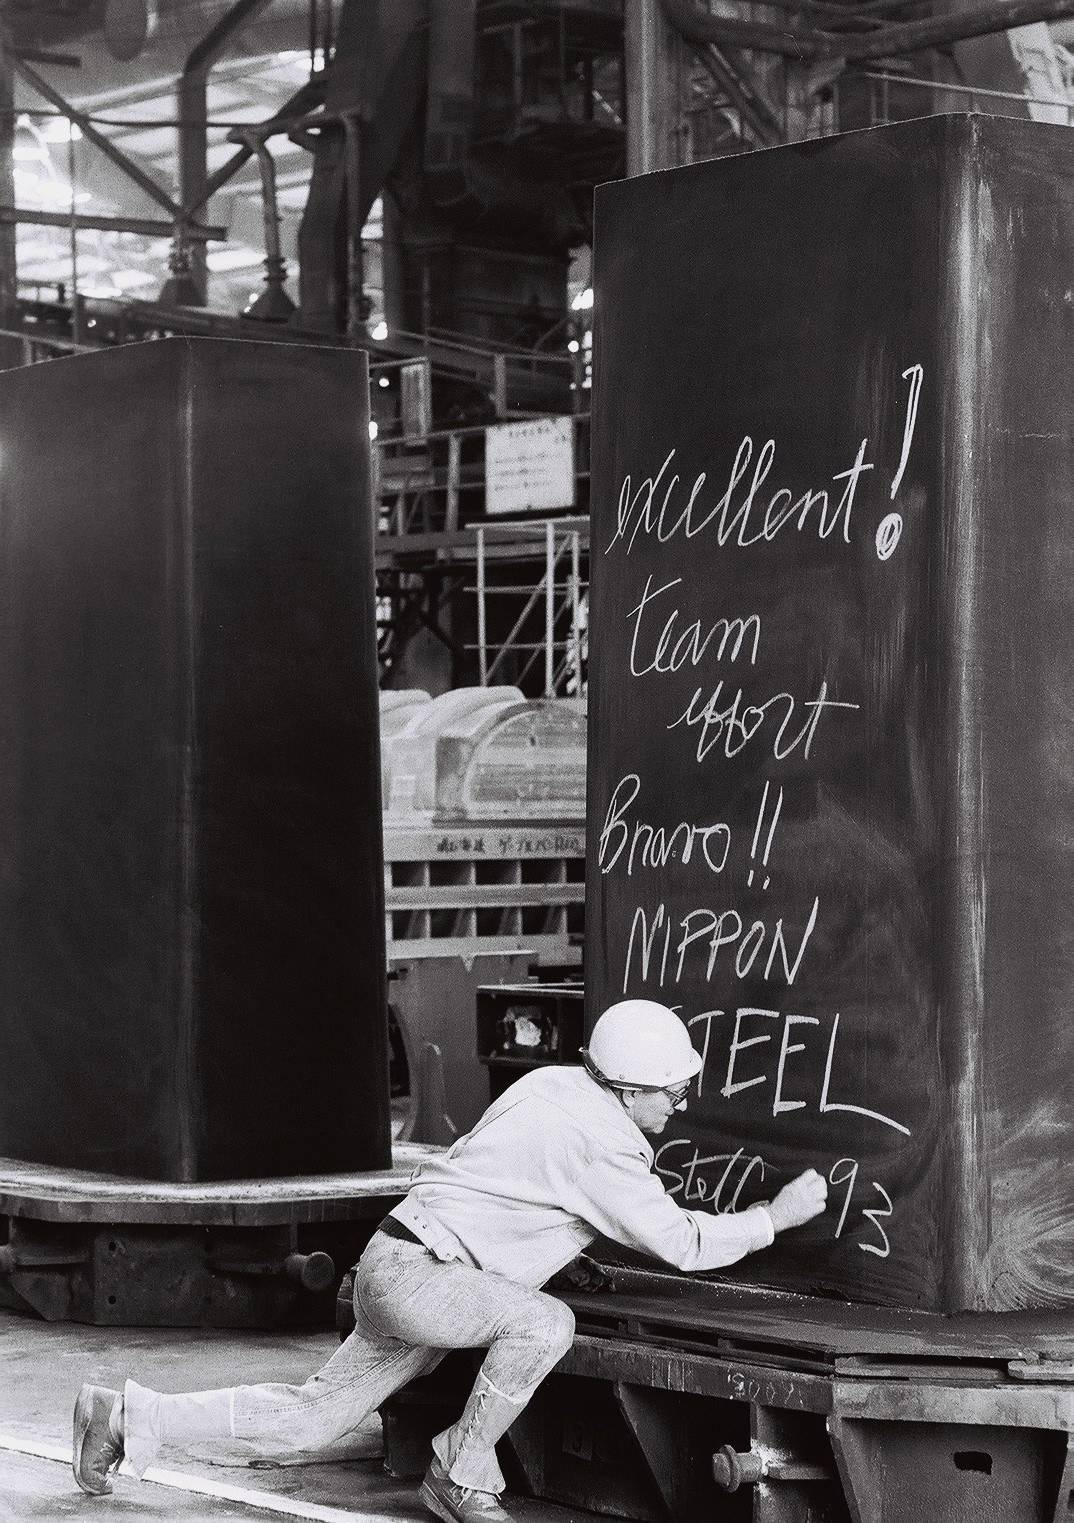 excellent!
team
effort
Bravo!!
NIPPON
STEEL
Stella 93